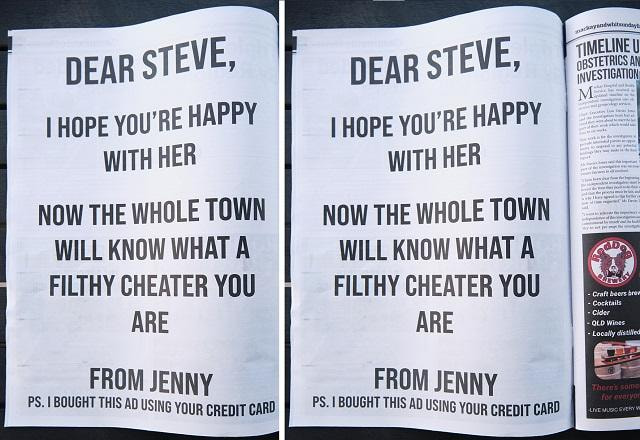 DEAR STEVE,
I HOPE YOU'RE HAPPY
WITH HER
NOW THE WHOLE TOWN
WILL KNOW WHAT A
FILTHY CHEATER YOU
ARE
FROM JENNY
PS. I BOUGHT THIS AD USING YOUR CREDIT CARD
DEAR STEVE,
I HOPE YOU'RE HAPPY
WITH HER
NOW THE WHOLE TOWN
WILL KNOW WHAT A
FILTHY CHEATER YOU
ARE
FROM JENNY
PS. I BOUGHT THIS AD USING YOUR CREDIT CARD
TIMELINE U
OBSTETRICS AN
INVESTIGATION
- Craft beers brew
- Cocktails
- Cider
- QLD Wines
- Locally distilled
There's some
for everyon
-LIVE MUSIC EVERY W